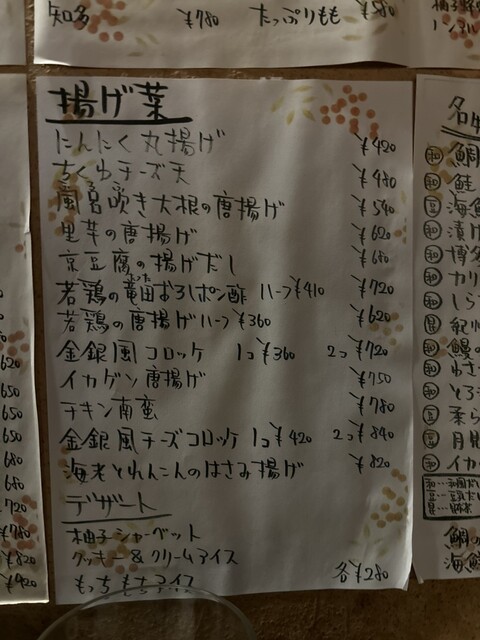 知多 ¥780
たっぷりもも ¥580
揚げ菜
にんにく丸揚げ ¥420
ちくわチーズ天 ¥480
風呂吹き大根の唐揚げ ¥540
里芋の唐揚げ ¥620
京豆腐の揚げだし ¥680
若鶏の竜田おろしポン酢 ハーフ¥410 ¥720
若鶏の唐揚げハーフ¥360 ¥620
金銀風コロッケ 1コ¥360 2コ¥720
イカゲソ唐揚げ ¥750
チキン南蛮 ¥780
金銀風チーズコロッケ 1コ¥420 2コ¥840
海老とれんこんのはさみ揚げ ¥820
デザート
柚子シャーベット
クッキー&クリームアイス
もっちもちアイス 各¥280
620
650
650
650
680
680
720
¥780
¥820
¥920
和 鯛
和 鮭
豆 海鮮
和 漬け
和 博多
和 カリ
和 しら
昆 紀州
和 鰻の
和 わさ
和 とろ
豆 柔ら
豆 月見
和 イカ
鯛の
海鮮